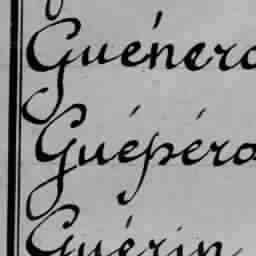 Guénero
Guépéro
Guérin